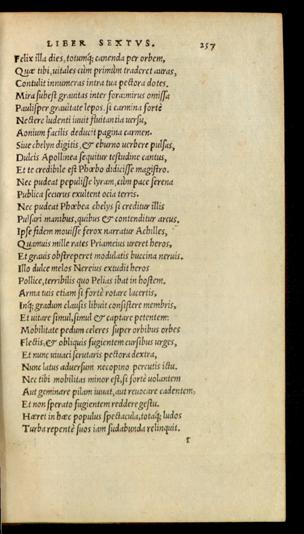 LIBER SEXTVS. 257
Felix illa dies, totumq́; canenda per orbem,
Quæ tibi, uitales cùm primùm traderet auras,
Contulit innumeras intra tua pectora dotes.
Mira subest grauitas inter fora, mirus omissa
Paulisper grauitate lepos. si carmina fortè
Nectere ludenti iuuit fluitantia uersu,
Aonium facilis deducit pagina carmen.
Siue chelyn digitis, & eburno uerbere pulsas,
Dulcis Apollinea sequitur testudine cantus,
Et te credibile est Phœbo didicisse magistro.
Nec pudeat pepulisse lyram, cùm pace serena
Publica securis exultent ocia terris.
Nec pudeat Phœbea chelys si creditur illis
Pulsari manibus, quibus & contenditur arcus.
Ipse fidem mouisse ferox narratur Achilles,
Quamuis mille rates Priameius ureret heros,
Et grauis obstreperet modulatis buccina neruis.
Illo dulce melos Nereius extudit heros
Pollice, terribilis quo Pelias ibat in hostem.
Arma tuis etiam si fortè rotare lacertis,
Inq́; gradum clausis libuit consistere membris,
Et uitare simul, simul & captare petentem:
Mobilitate pedum celeres super orbibus orbes
Flectis, & obliquis fugientem cursibus urges,
Et nunc uiuaci scrutaris pectora dextra,
Nunc latus aduersum necopino percutis ictu.
Nec tibi mobilitas minor est, si fortè uolantem
Aut geminare pilam iuuat, aut reuocare cadentem,
Et non sperato fugientem reddere gestu.
Hæret in hæc populus spectacula, totaq́; ludos
Turba repentè suos iam sudabunda relinquit.